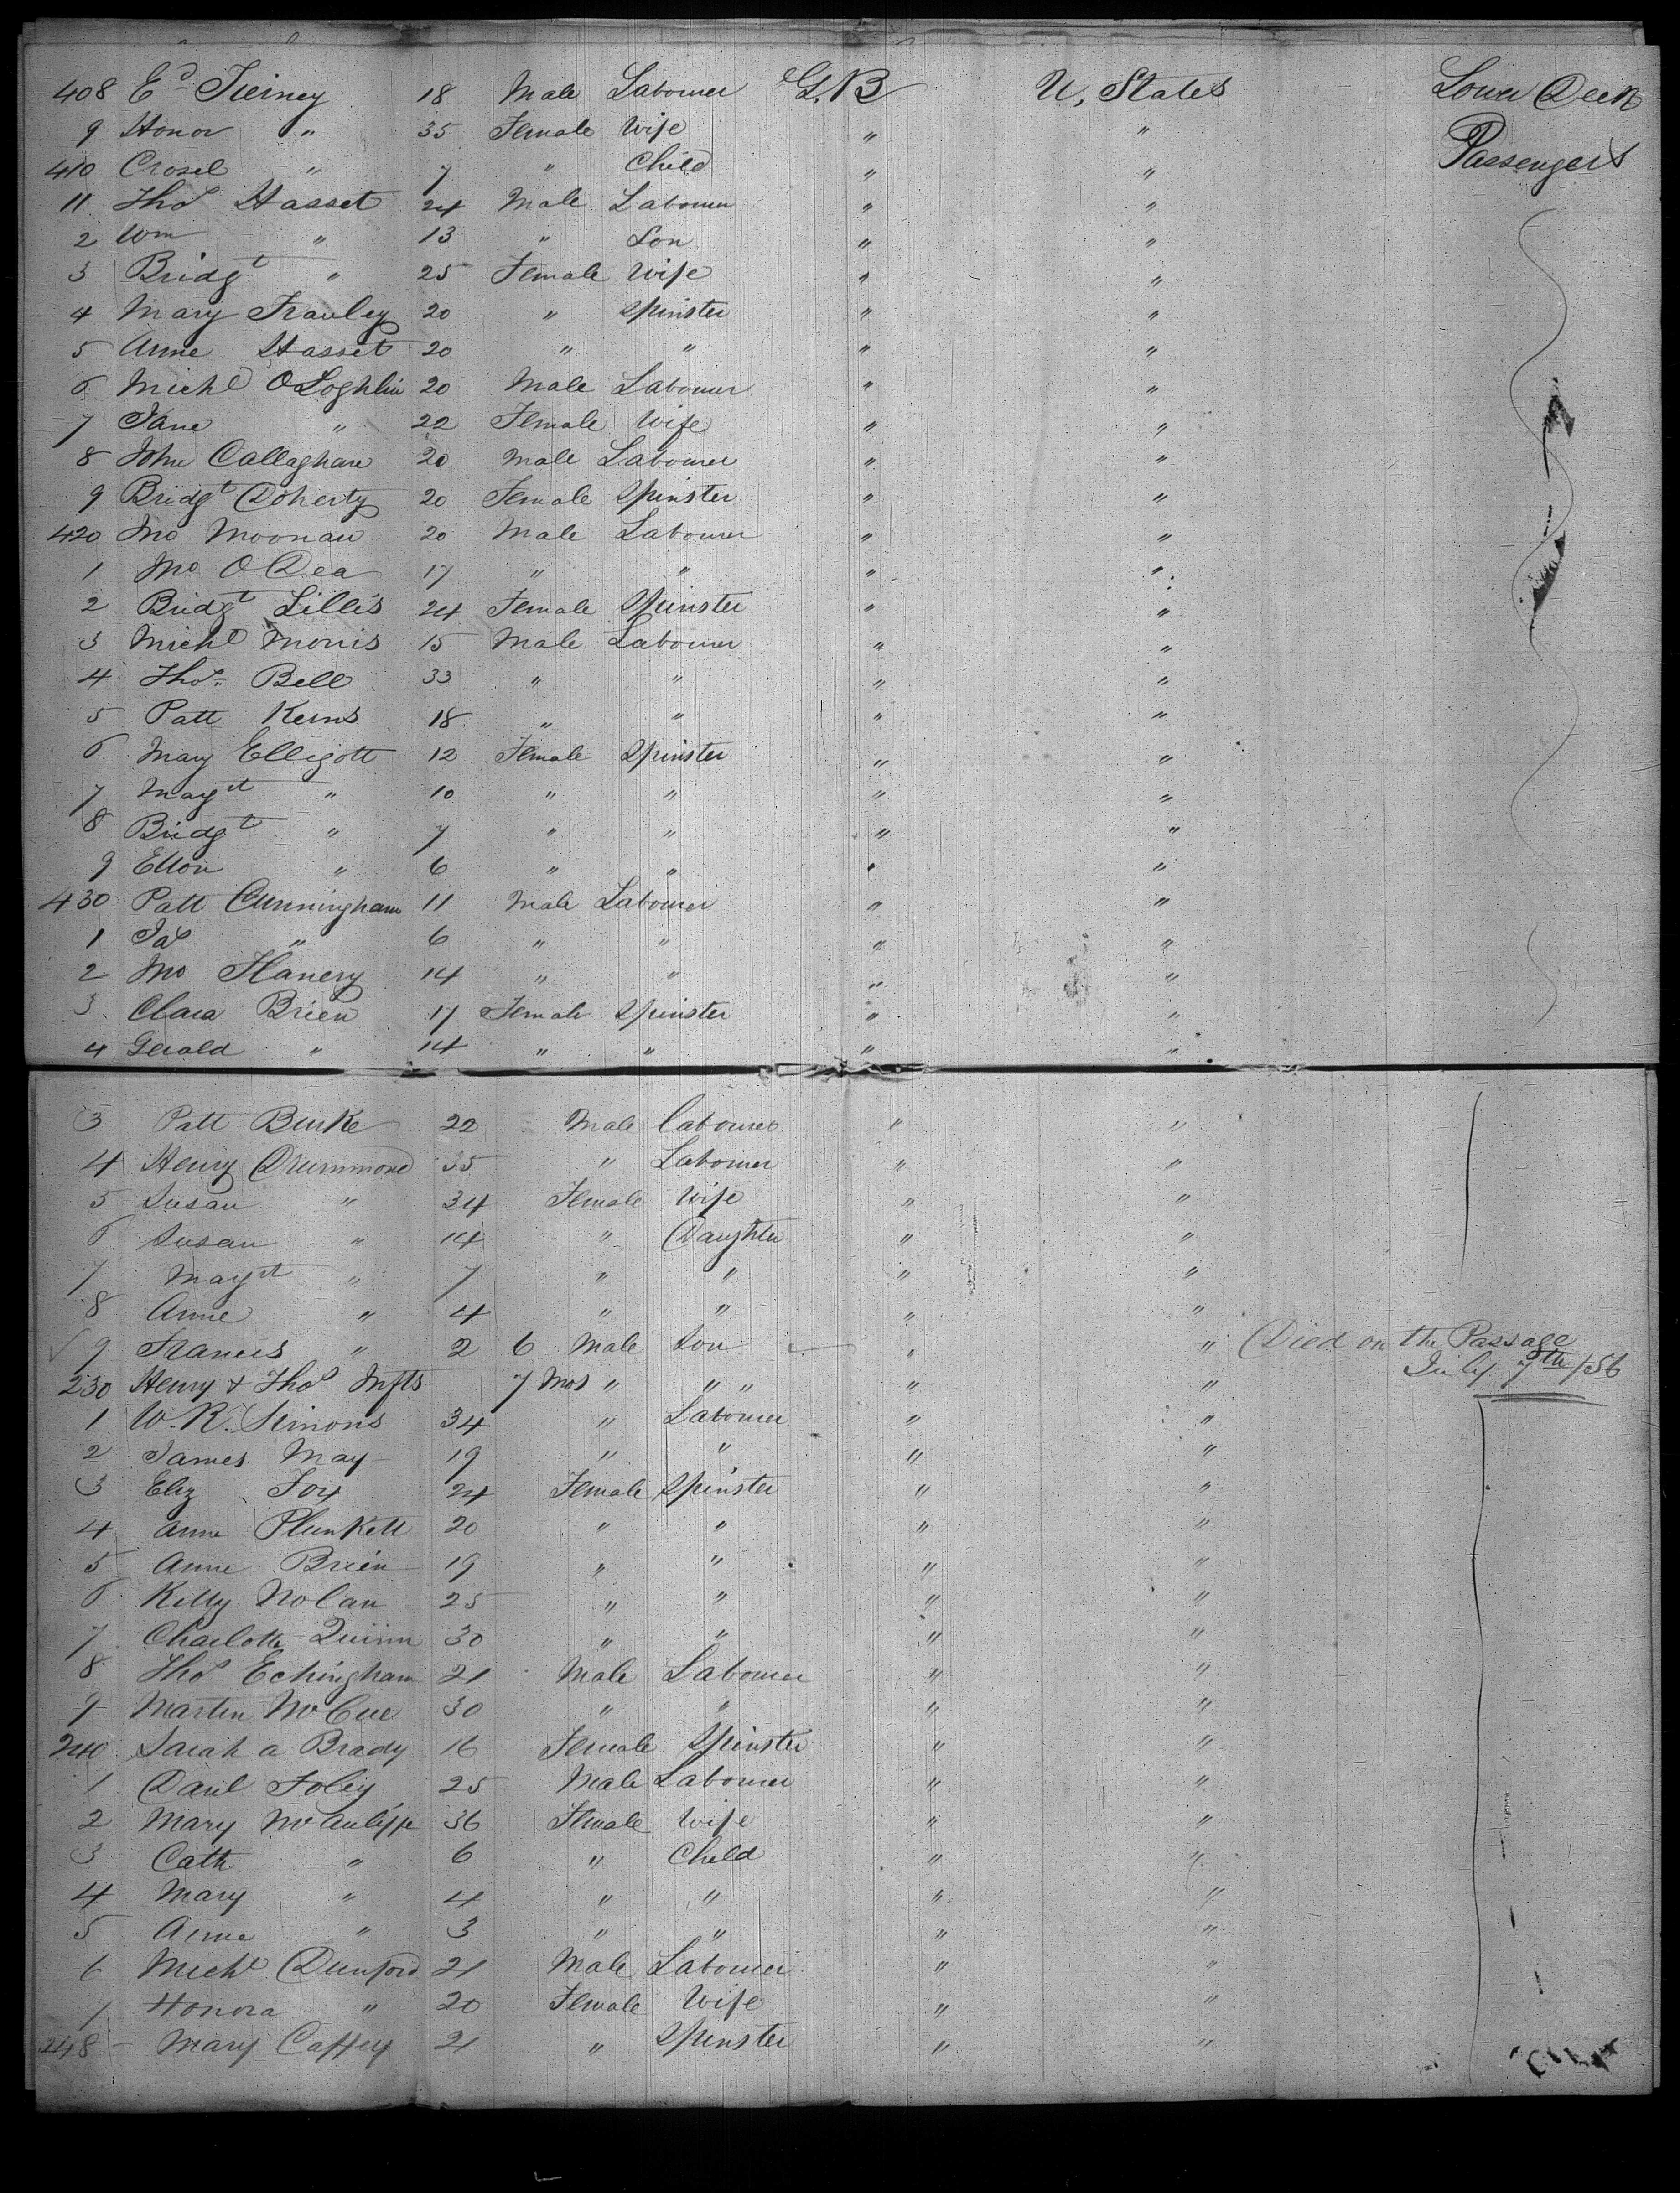 408 Ed Tierney 18 Male Labourer G.B U, States Lower Deck
9 Honor " 35 Female Wife " "
410 " 7 " Child " " Passengers
11 Thos Hasset 24 Male Labourer " "
2 Wm " 13 " Son " "
3 Bridgt " 25 Female Wife " "
4 Mary Frauley 20 " Spinster " "
5 Anne Hasset 20 " " " "
6 Michl O'Loghlin 20 Male Labourer " "
7 Jane " 22 Female Wife " "
8 John Callaghan 20 Male Labourer " "
9 Bridgt Doherty 20 Female Spinster " "
420 Jno Moonan 20 Male Labourer " "
1 Jno O'Dea 17 " " " "
2 Bridgt Lillis 24 Female Spinster " "
3 Michl Morris 15 Male Labourer " "
4 Thos Bell 33 " " " "
5 Patt Kerns 18 " " " "
6 Mary Elligott 12 Female Spinster " "
7 Margt " 10 " " " "
8 Bridgt " 7 " " " "
9 Ellon " 6 " " " "
430 Patt Cunningham 11 Male Labourer " "
1 Jas " 6 " " " "
2 Jno Flanery 14 " " " "
3 Clara Brien 17 Female Spinster " "
4 Gerald " 14 " " " "
3 Patt Burke 22 Male Labourer " "
4 Henry Drummond 35 " Labourer " "
5 Susan " 34 Female Wife " "
6 Susan " 14 " Daughter " "
7 Margt " 7 " " " "
8 Anne " 4 " " " "
9 Francis " 2 6 Male Son " " Died on the Passage
July 7th /56
230 Henry & Thos Infts 7 Mos " " " " "
1 W. R. Simons 34 " Labourer " "
2 James May 19 " " " "
3 Eliz Fox 24 Female Spinster " "
4 Anne Plunkett 20 " " " "
5 Anne Brien 19 " " " "
6 Kitty Nolan 25 " " " "
7 Charlotte Quinn 30 " " " "
8 Thos Echingham 21 Male Labourer " "
9 Martin McCue 30 " " " "
240 Sarah a Brady 16 Female Spinster " "
1 Danl Foley 25 Male Labourer " "
2 Mary McAuliffe 36 Female Wife " "
3 Cath " 6 " Child " "
4 Mary " 4 " " " "
5 Anne " 3 " " " "
6 Michl Dunford 21 Male Labourer " "
7 Honora " 20 Female Wife " "
248 Mary Caffey 21 " Spinster " "